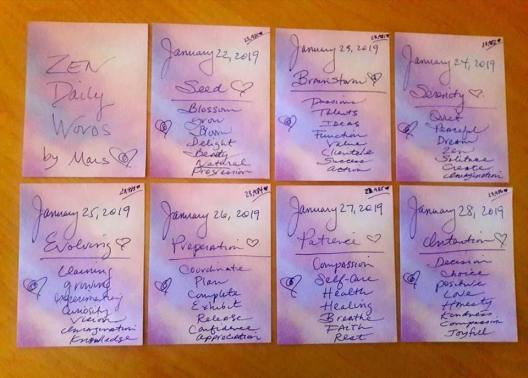 ZEN
Daily
Words
by Mars
January 22, 2019
Seed
Blossom
Grow
Bloom
Delight
Beauty
Natural
Progression
January 23, 2019
Brainstorm
Passions
Talents
Ideas
Function
Value
Clientele
Success
Action
January 24, 2019
Serenity
Quiet
Peaceful
Dream
Zen
Solitude
Create
Imagination
January 25, 2019
Evolving
Learning
Growing
Experimenting
Curiosity
Vision
Imagination
Knowledge
January 26, 2019
Preparation
Coordinate
Plan
Complete
Exhibit
Release
Confidence
Appreciation
January 27, 2019
Patience
Compassion
Self-Care
Health
Healing
Breathe
FAith
Rest
January 28, 2019
Intention
Decision
Choice
Positive
Love
Honesty
Kindness
Compassion
Joyfull